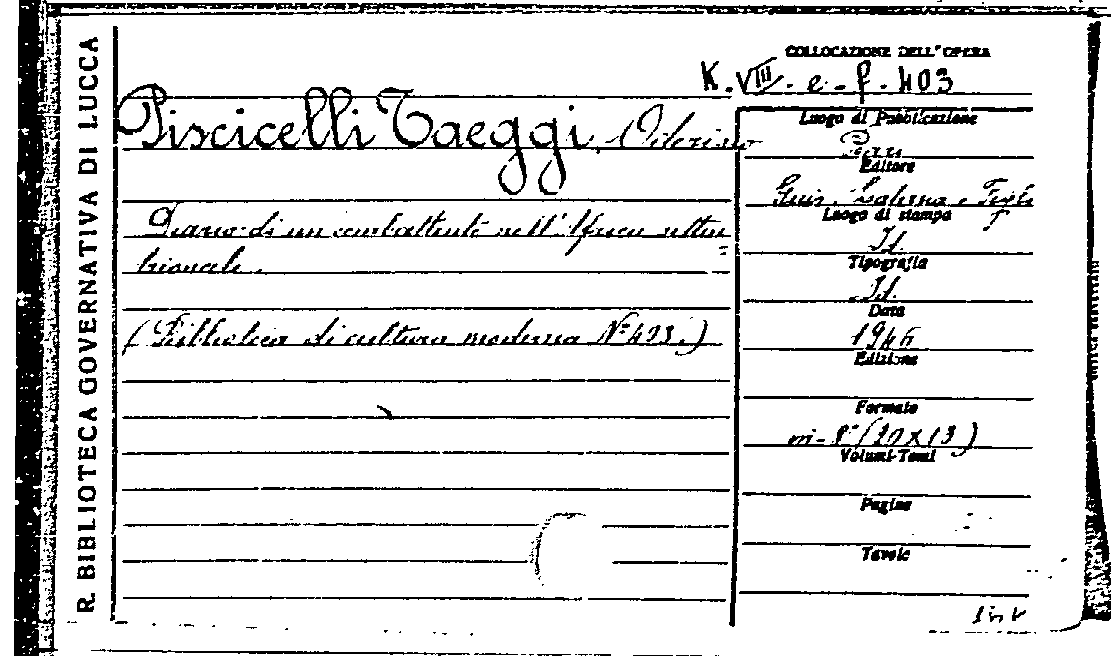 R. BIBLIOTECA GOVERNATIVA DI LUCCA
COLLOCAZIONE DELL'OPERA
K. VIII. e. f. 403
Piscicelli Taeggi, Oderisio
Diario di un combattente nell'Africa setten
trionale.
(Biblioteca di cultura moderna Nº 403.)
Luogo di Pubblicazione
Bari
Editore
Gius. Laterza e Figli
Luogo di stampa
Id.
Tipografia
Id.
Data
1946
Edizione
Formato
in-8° (20 x 13)
Volumi-Tomi
Pagine
Tavole